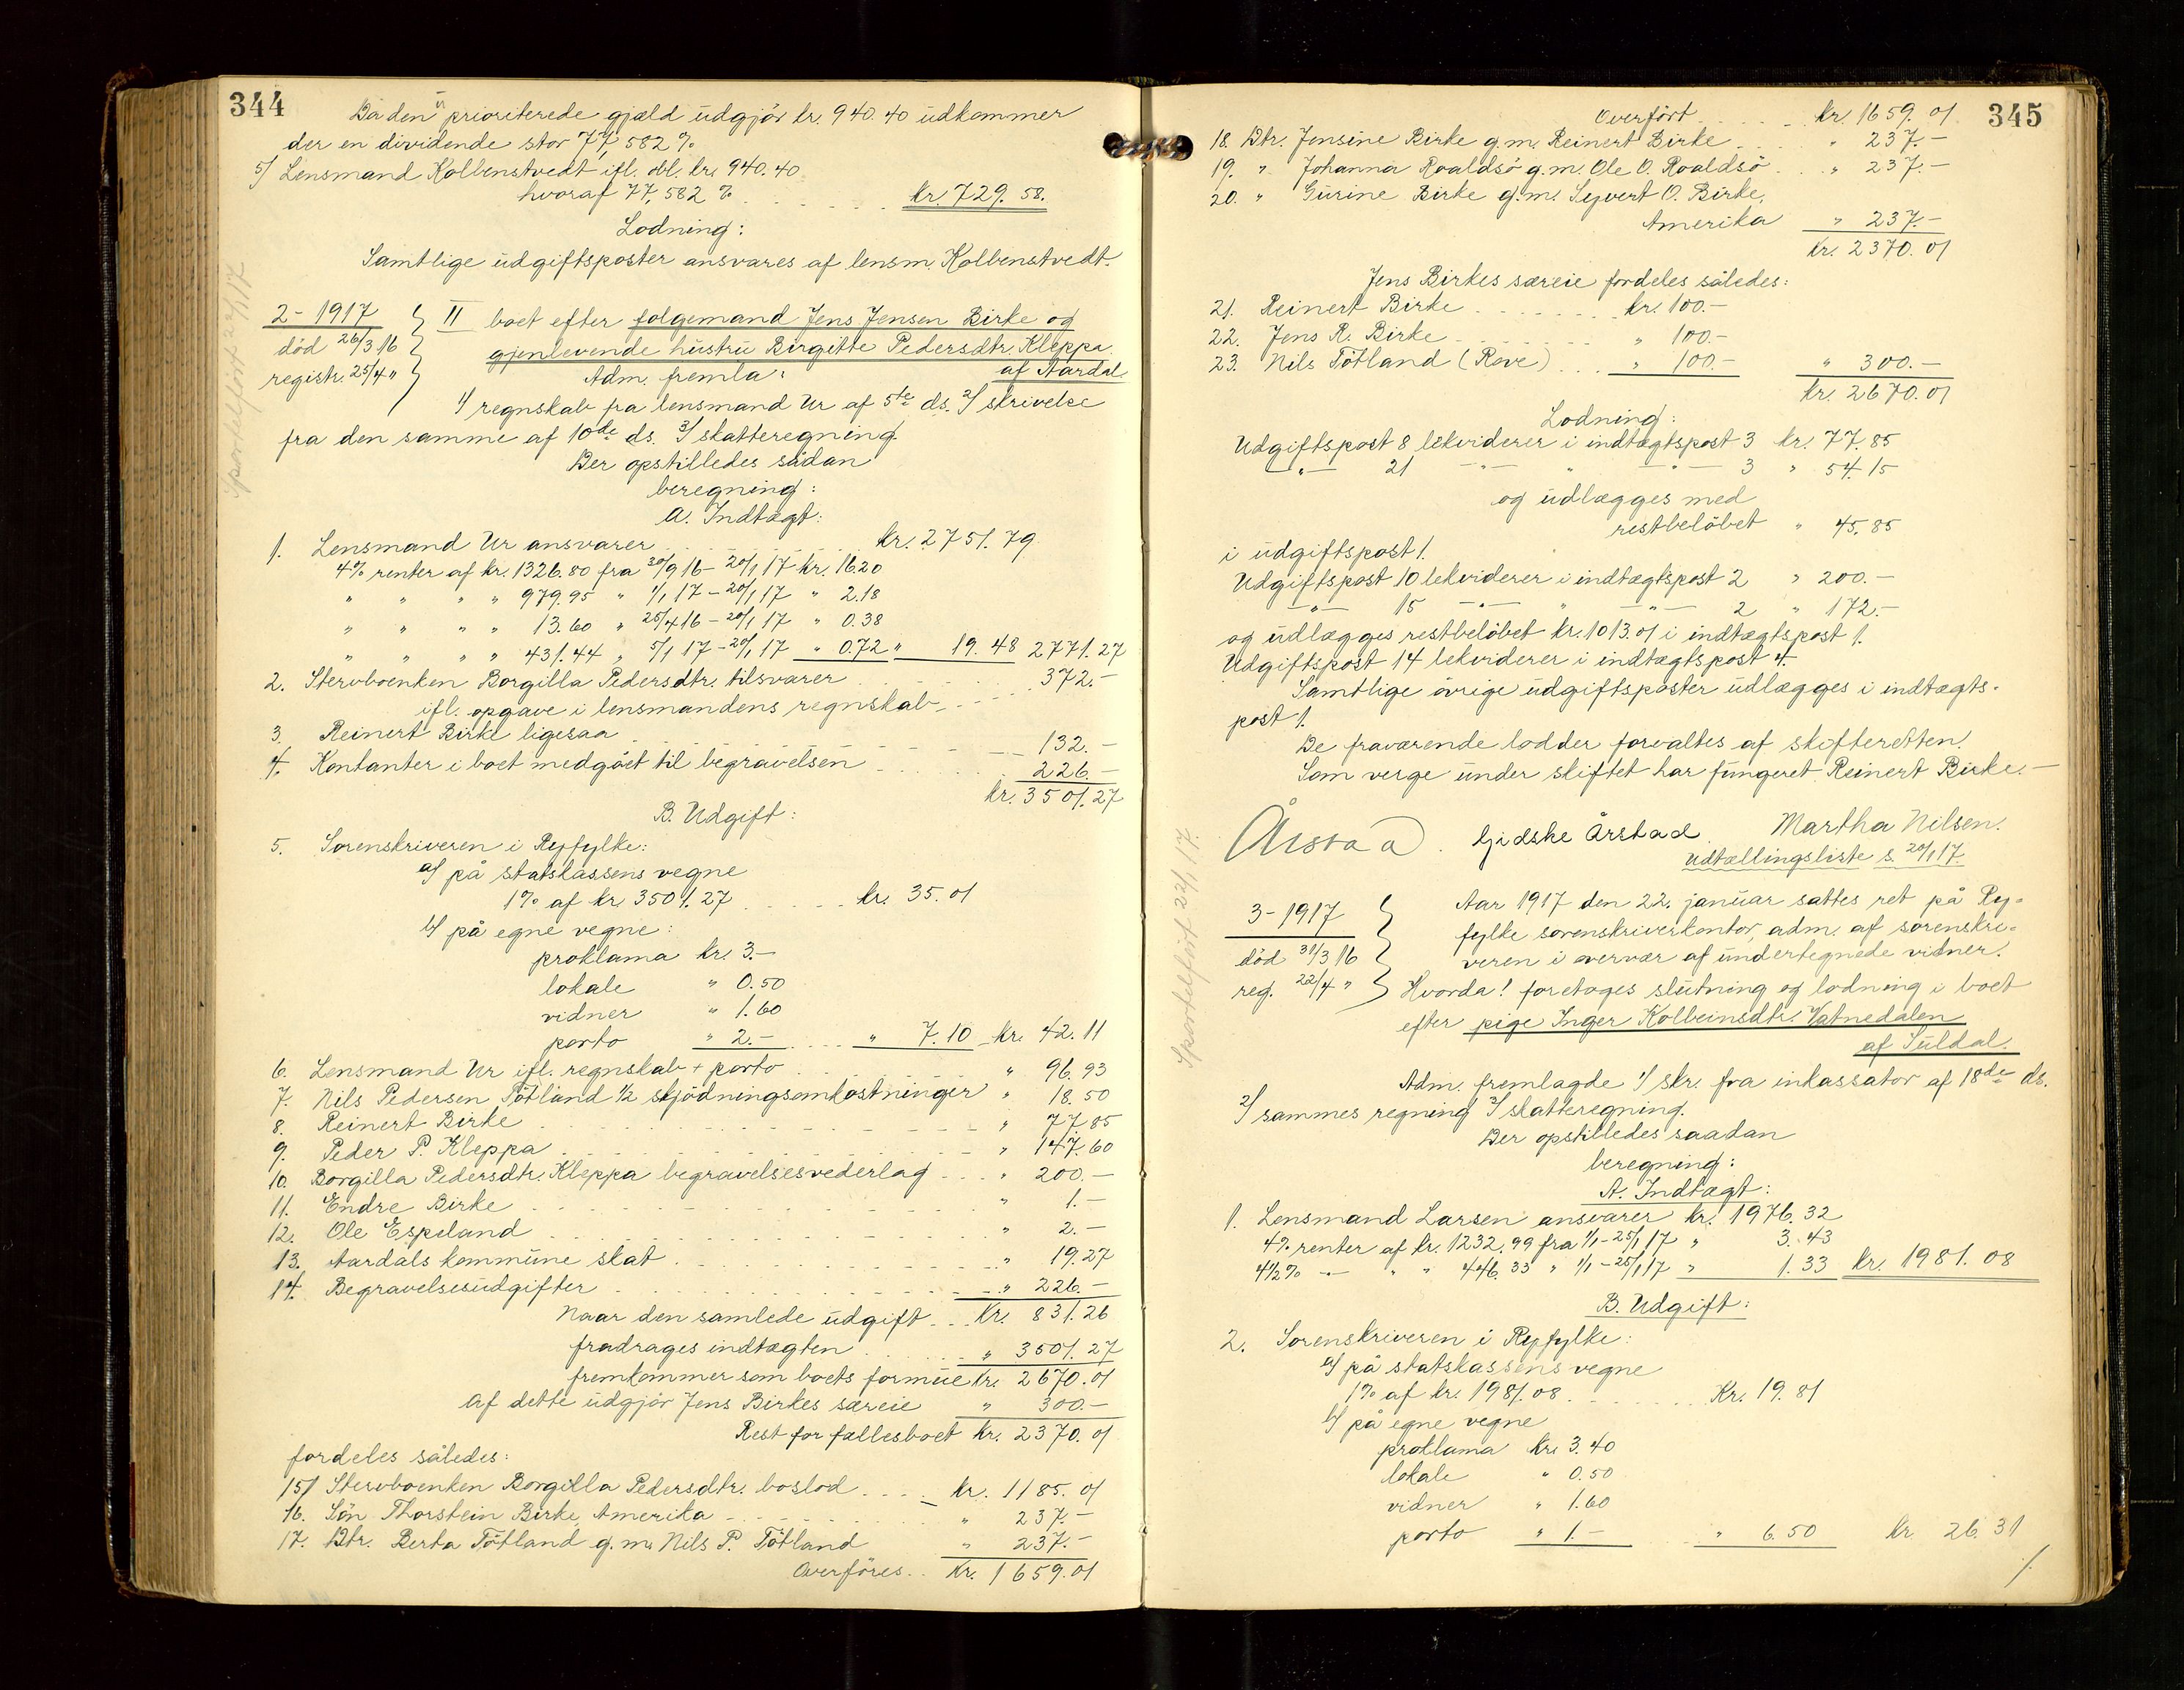 344
Da den uprioriterede gjæld udgjör kr. 940.40 udkommer
der en dividende stor 77,582 %
5/ Lensmand Kolbenstvedt ifl. obl. kr. 940.40
hvoraf 77,582 % kr. 729.58.
Lodning:
Samtlige udgiftsposter ansvares af lensm. Kolbenstvedt.
Sportelfört 22/1 17
2-1917
död 26/3 16
registr. 25/4 "
II boet efter folgemand Jens Jensen Birke og
gjenlevende hustru Birgitte Pedersdtr. Kleppa
af Aardal.
Adm. fremla:
1/ regnskab fra lensmand Ur af 5te ds. 2/ skrivelse
fra den samme af 10de ds. 3/ skatteregning.
Der opstilledes sådan
beregning:
A. Indtægt:
1. Lensmand Ur ansvarer kr. 2751.79
4% renter af kr. 1326.80 fra 30/9 16 - 20/1 17 kr. 16.20
" " " " 979.95 " 1/1 17 - 20/1 17 " 2.18
" " " " 13.60 " 25/4 16 - 20/1 17 " 0.38
" " " " 431.44 " 5/1 17 - 20/1 17 " 0.72 " 19.48 2771.27
2. Stervboenken Borgilla Pedersdtr. tilsvarer 372.-
ifl. opgave i lensmandens regnskab
3. Reinert Birke ligesaa 132.-
4. Kontanter i boet medgået til begravelsen 226.-
kr. 3501.27
B. Udgift:
5. Sorenskriveren i Ryfylke:
a/ på statskassens vegne
1% af kr. 3501.27 kr. 35.01
b/ på egne vegne:
proklama kr. 3.-
lokale " 0.50
vidner " 1.60
porto " 2.- " 7.10 kr. 42.11
6. Lensmand Ur ifl. regnskab + porto " 96.93
7. Nils Pedersen Tötland 1/2 skjödningsomkostninger " 18.50
8. Reinert Birke " 77.85
9. Peder P. Kleppa " 147.60
10. Borgilla Pedersdtr. Kleppa begravelsesvederlag " 200.-
11. Endre Birke " 1.-
12. Ole Espeland " 2.-
13. Aardals kommune skat " 19.27
14. Begravelsesudgifter " 226.-
Naar den samlede udgift Kr. 831.26
fradrages indtægten " 3501.27
fremkommer som boets formue kr. 2670.01
Af dette udgjör Jens Birkes særeie " 300.-
Rest for fællesboet kr. 2370.01
fordeles således:
15/ Stervboenken Borgilla Pedersdtr. boslod kr. 1185.01
16. Sön Thorstein Birke, Amerika " 237.-
17. Dtr. Berta Tötland g.m. Nils P. Tötland " 237.-
Overföres kr. 1659.01
345
Overfört kr. 1659.01
18. Dtr. Jensine Birke g.m. Reinert Birke " 237.-
19. " Johanna Roaldsö g.m. Ole O. Roaldsö " 237.-
20. " Gurine Birke g.m. Syvert O. Birke,
Amerika " 237.-
Kr. 2370.01
Jens Birkes særeie fordeles således:
21. Reinert Birke kr. 100.-
22. Jens R. Birke " 100.-
23. Nils Tötland (Rove) " 100.- " 300.-
Kr. 2670.01
Lodning:
Udgiftspost 8 likviderer i indtægtspost 3 kr. 77.85
-"- 21 -"- " -"- 3 " 54.15
og udlægges med
restbelöbet " 45.85
i udgiftspost 1.
Udgiftspost 10 likviderer i indtægtspost 2 " 200.-
-"- 15 -"- " -"- 2 " 172.-
og udlægges restbelöbet kr. 1013.01 i indtægtspost 1.
Udgiftspost 14 likviderer i indtægtspost 4.
Samtlige övrige udgiftsposter udlægges i indtægts-
post 1.
De fraværende lodder forvaltes af skifteretten.
Som verge under skiftet har fungeret Reinert Birke.
Gjidske Årstad Martha Nilsen.
Udtællingsliste s. 20/1 17
Sportelfört 22/1 17.
3-1917
död 31/3 16
reg. 22/4 "
Aar 1917 den 22. januar sattes ret på Ry-
fylke sorenskriverkontor, adm. af sorenskri-
veren i overvær af undertegnede vidner.
Hvorda! foretages slutning og lodning i boet
efter pige Inger Kolbeinsdtr. Vatnedalen
af Suldal.
Adm. fremlagde 1/ skr. fra inkassator af 18de ds.
2/ sammes regning 3/ skatteregning.
Der opstilledes saadan
beregning:
A. Indtægt:
1. Lensmand Larsen ansvarer kr. 1976.32
4% renter af kr. 1232.99 fra 1/1 - 25/1 17 " 3.43
4 1/2 % -"- " " 446.33 " 1/1 - 25/1 17 " 1.33 kr. 1981.08
B. Udgift:
2. Sorenskriveren i Ryfylke:
a/ på statskassens vegne
1% af kr. 1981.08 Kr. 19.81
b/ på egne vegne
proklama kr. 3.40
lokale " 0.50
vidner " 1.60
porto " 1.- " 6.50 kr. 26.31
/.